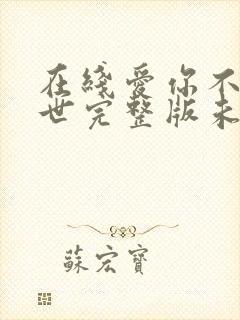 在线爱你不
世完整版未
蘇宏寶